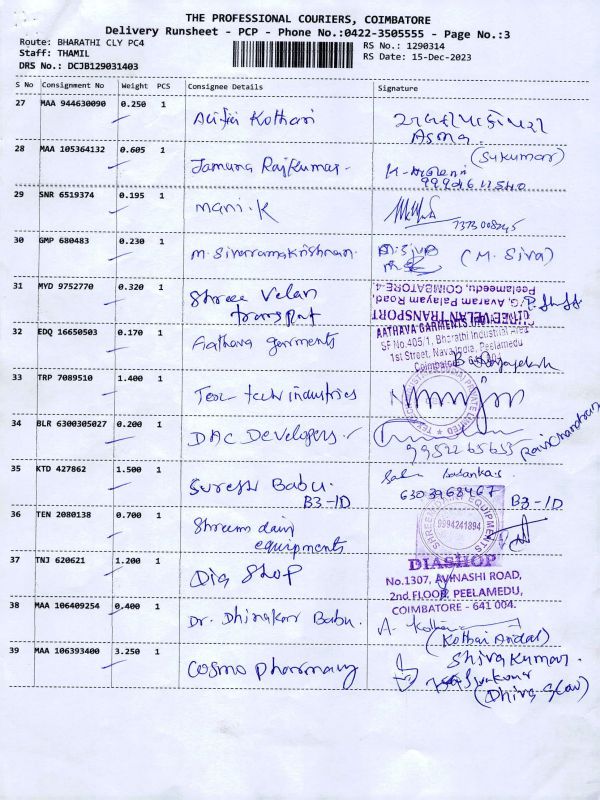 THE PROFESSIONAL COURIERS, COIMBATORE
Delivery Runsheet - PCP - Phone No.:0422-3505555 - Page No.:3
Route: BHARATHI CLY PC4
RS No.: 1290314
Staff: THAMIL
RS Date: 15-Dec-2023
DRS No.: DCJB129031403
S No Consignment No Weight PCS Consignee Details Signature
27 MAA 944630090 0.250 1 Kothari
Asma
28 MAA 105364132 0.605 1 Jamuna Rajkumar (Sukumar)
29 SNR 6519374 0.195 1 Mani.K
30 GMP 680483 0.230 1 M. Sivaramakrishnan M.Siva (M. Siva)
31 MYD 9752770 0.320 1 Shree Velan
transport
SHREE VELAN TRANSPORT
G. Avaram Palayam Road,
Peelamedu, COIMBATORE-4
32 EDQ 16650503 0.170 1 Aathava garments
AATHAVA GARMENTS
SF No.405/1, Bharathi Industrial Area
1st Street, Nava India, Peelamedu
Coimbatore
33 TRP 7089510 1.400 1 Tex tech industries
34 BLR 6300305027 0.200 1 DAC Developers. Ravichandran
35 KTD 427862 1.500 1 Suresh Babu.
B3-1D
6303968467 B3-1D
36 TEN 2080138 0.700 1 Shreem dairy
equipments
SHREEM DAIRY EQUIPMENTS
9994241894
37 TNJ 620621 1.200 1 Dia Shop
DIASHOP
No.1307, AVINASHI ROAD,
2nd FLOOR, PEELAMEDU,
COIMBATORE - 641 004.
38 MAA 106409254 0.400 1 Dr. Dhinakar Babu. A. Kothai
(Kothai Andal)
39 MAA 106393400 3.250 1 Cosmo pharmacy Shivakumar.